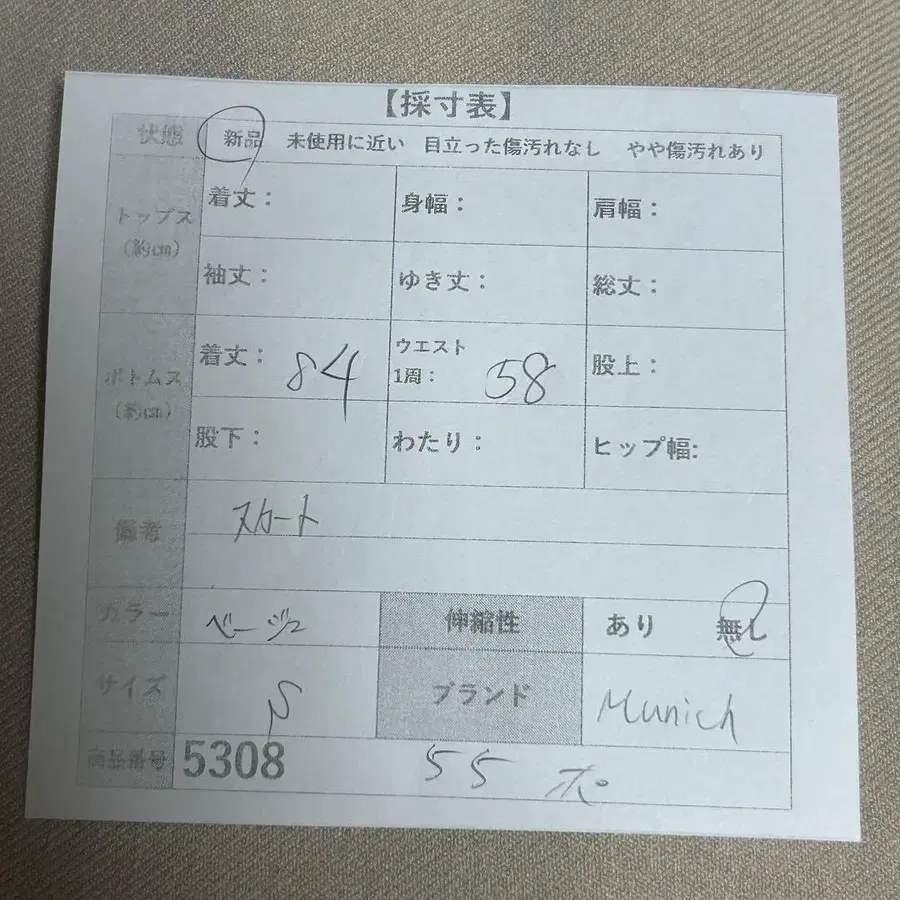 【採寸表】
状態 新品 未使用に近い 目立った傷汚れなし やや傷汚れあり
トップス
(約cm)
着丈： 身幅： 肩幅：
袖丈： ゆき丈： 総丈：
ボトムス
(約cm)
着丈： 84 ウエスト
1周： 58 股上：
股下： わたり： ヒップ幅:
備考 スカート
カラー ベージュ 伸縮性 あり 無し
サイズ S ブランド Munich
商品番号 5308 55 ポ